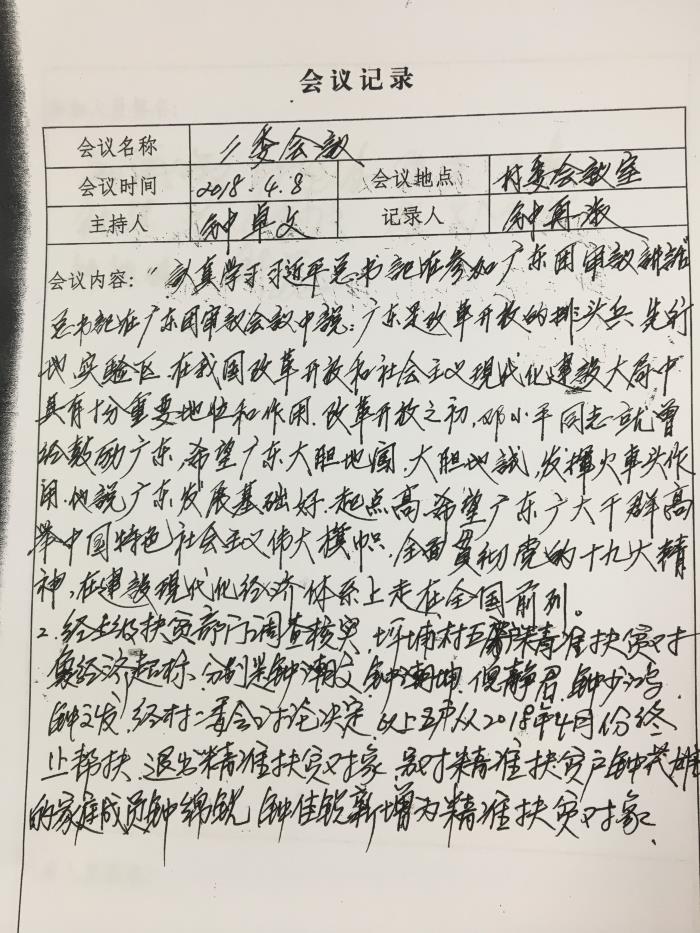 会议记录
会议名称 二委会议
会议时间 2018.4.8 会议地点 村委会议室
主持人 钟卓文 记录人 钟再
会议内容：“认真学习习近平总书記在参加广东团审议讲话
总书記在广东团审议会议中説：广东是改革开放的排头兵、先行
地、实验区、在我国改革开放和社会主义現代化建設大局中
具有十分重要地位和作用、改革开放之初、邓小平同志就曾
经鼓励广东、希望广东大胆地闯、大胆地試、发揮火車头作
用、他説广东发展基础好、起点高、希望广东广大干群高
举中国特色社会主义伟大旗帜、全面贯彻党的十九大精
神、在建設現代化经济体系上走在全国前列。
2、经上级扶贫部门调查核实、坪埔村五户精准扶贫对
象经济超标、分别是钟潮文、钟潮坤、倪静君、钟少鸿、
钟文发、经村二委会讨论决定、以上五户从2018年4月份终
止帮扶、退出精准扶贫对象、另对精准扶贫户钟茂雄
的家庭成员钟绵锐、钟佳锐新增为精准扶贫对象、